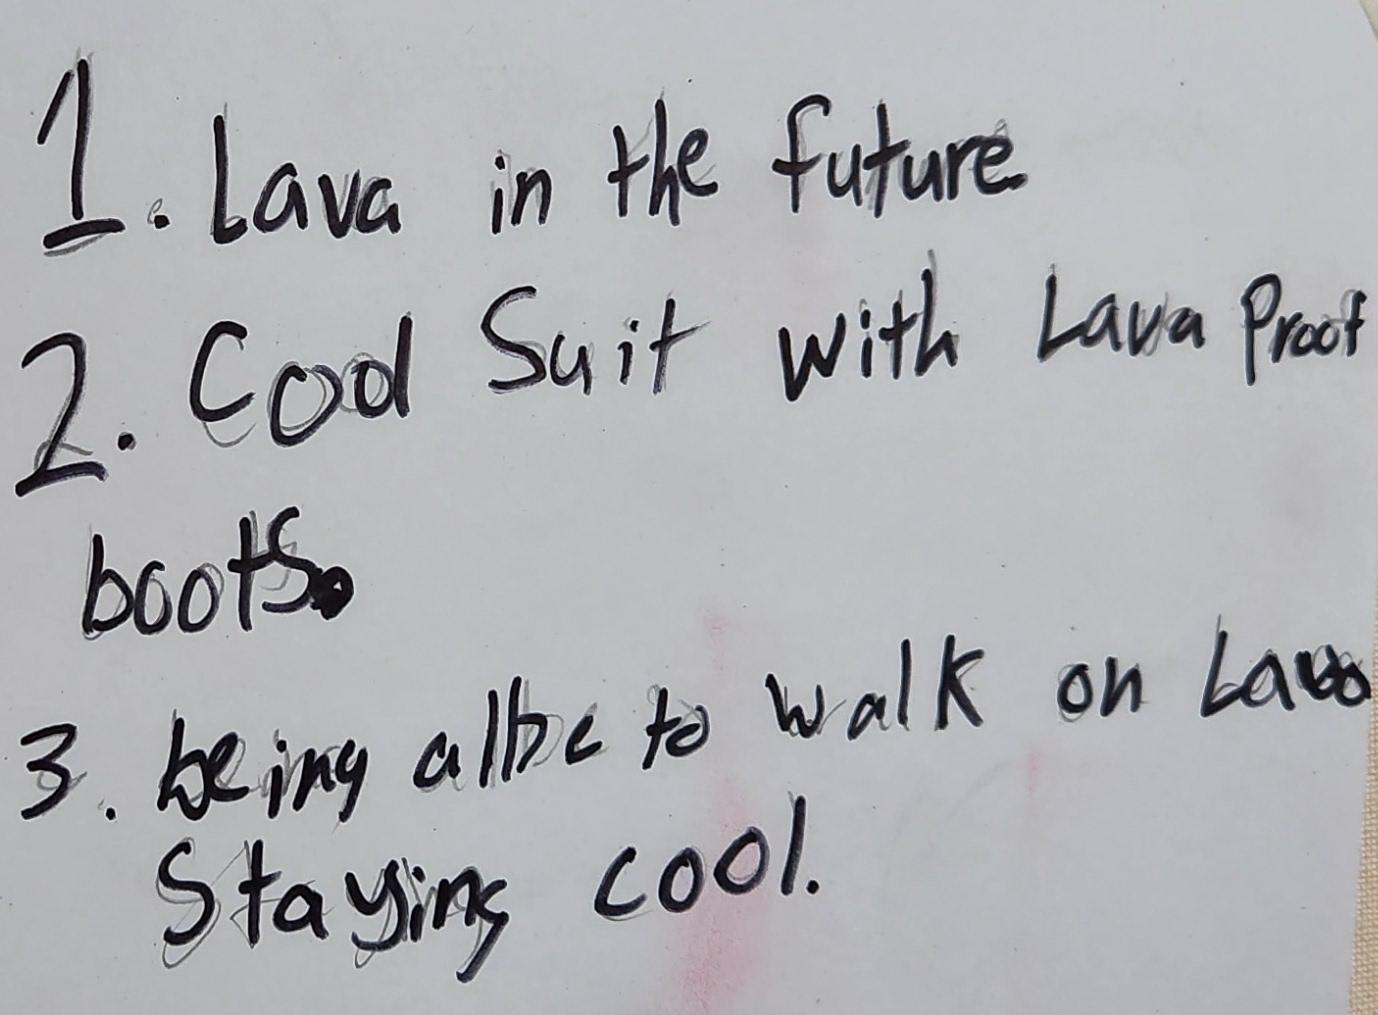 1. Lava in the future
2. Cool Suit with Lava Proof
boots.
3. being allbe to walk on Lava
Staying cool.